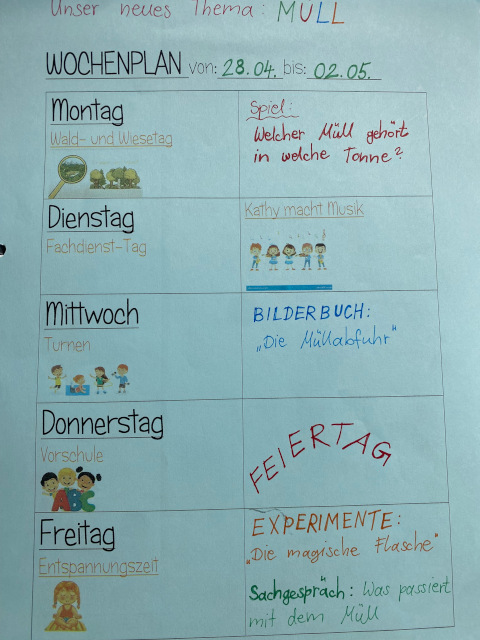 Unser neues Thema: MÜLL
WOCHENPLAN von: 28.04. bis: 02.05.
Montag
Wald- und Wiesetag
Spiel:
Welcher Müll gehört
in welche Tonne?
Dienstag
Fachdienst-Tag
Kathy macht Musik
Mittwoch
Turnen
BILDERBUCH:
„Die Müllabfuhr"
Donnerstag
Vorschule
ABC
FEIERTAG
Freitag
Entspannungszeit
EXPERIMENTE:
„Die magische Flasche"
Sachgespräch: Was passiert
mit dem Müll